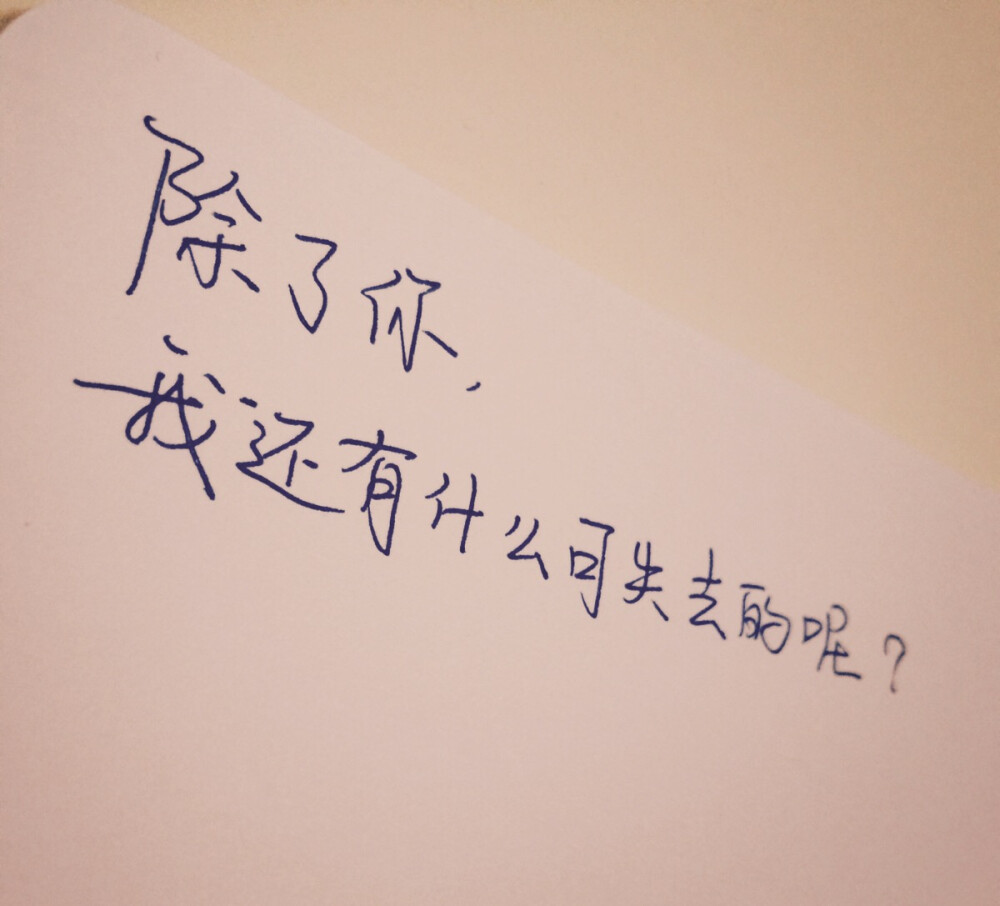 除了你，
我还有什么可失去的呢？